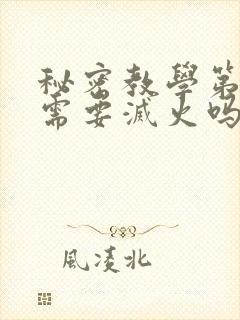 秘密教學第
需要滅火吗
風凌北